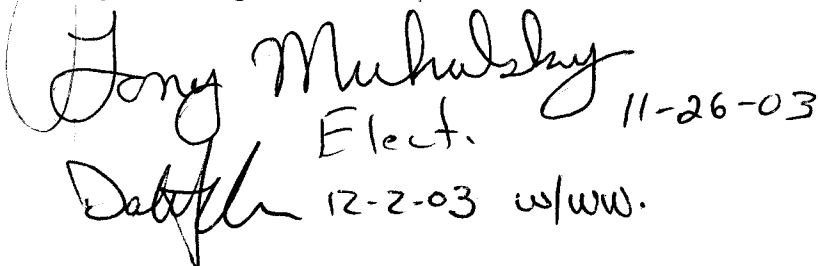 Tony Muhalsky
Elect. 11-26-03
12-2-03 w/ww.